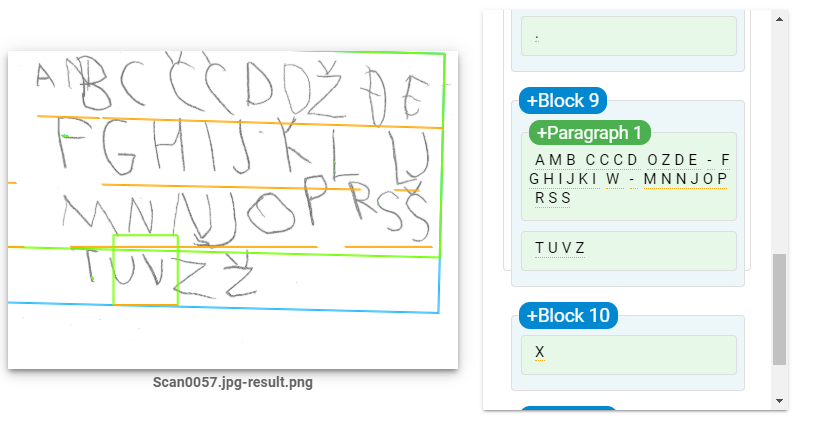 A B C Č Ć D DŽ Đ E
F G H I J K L LJ
M N NJ O P R S Š
T U V Z Ž
Scan0057.jpg-result.png
.
+Block 9
+Paragraph 1
A M B C C C D O Z D E - F
G H I J K I W - M N N J O P
R S S
T U V Z
+Block 10
X